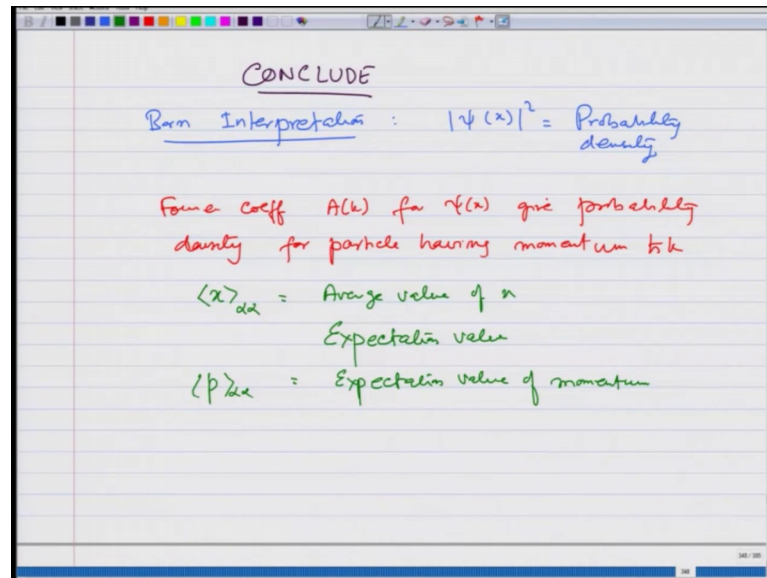 CONCLUDE
Born Interpretation : |ψ(x)|² = Probability
density
Fourier coeff A(k) for ψ(x) give probability
density for particle having momentum ħk
⟨x⟩αα = Average value of x
Expectation value
⟨p⟩αα = Expectation value of momentum
348 / 395
348